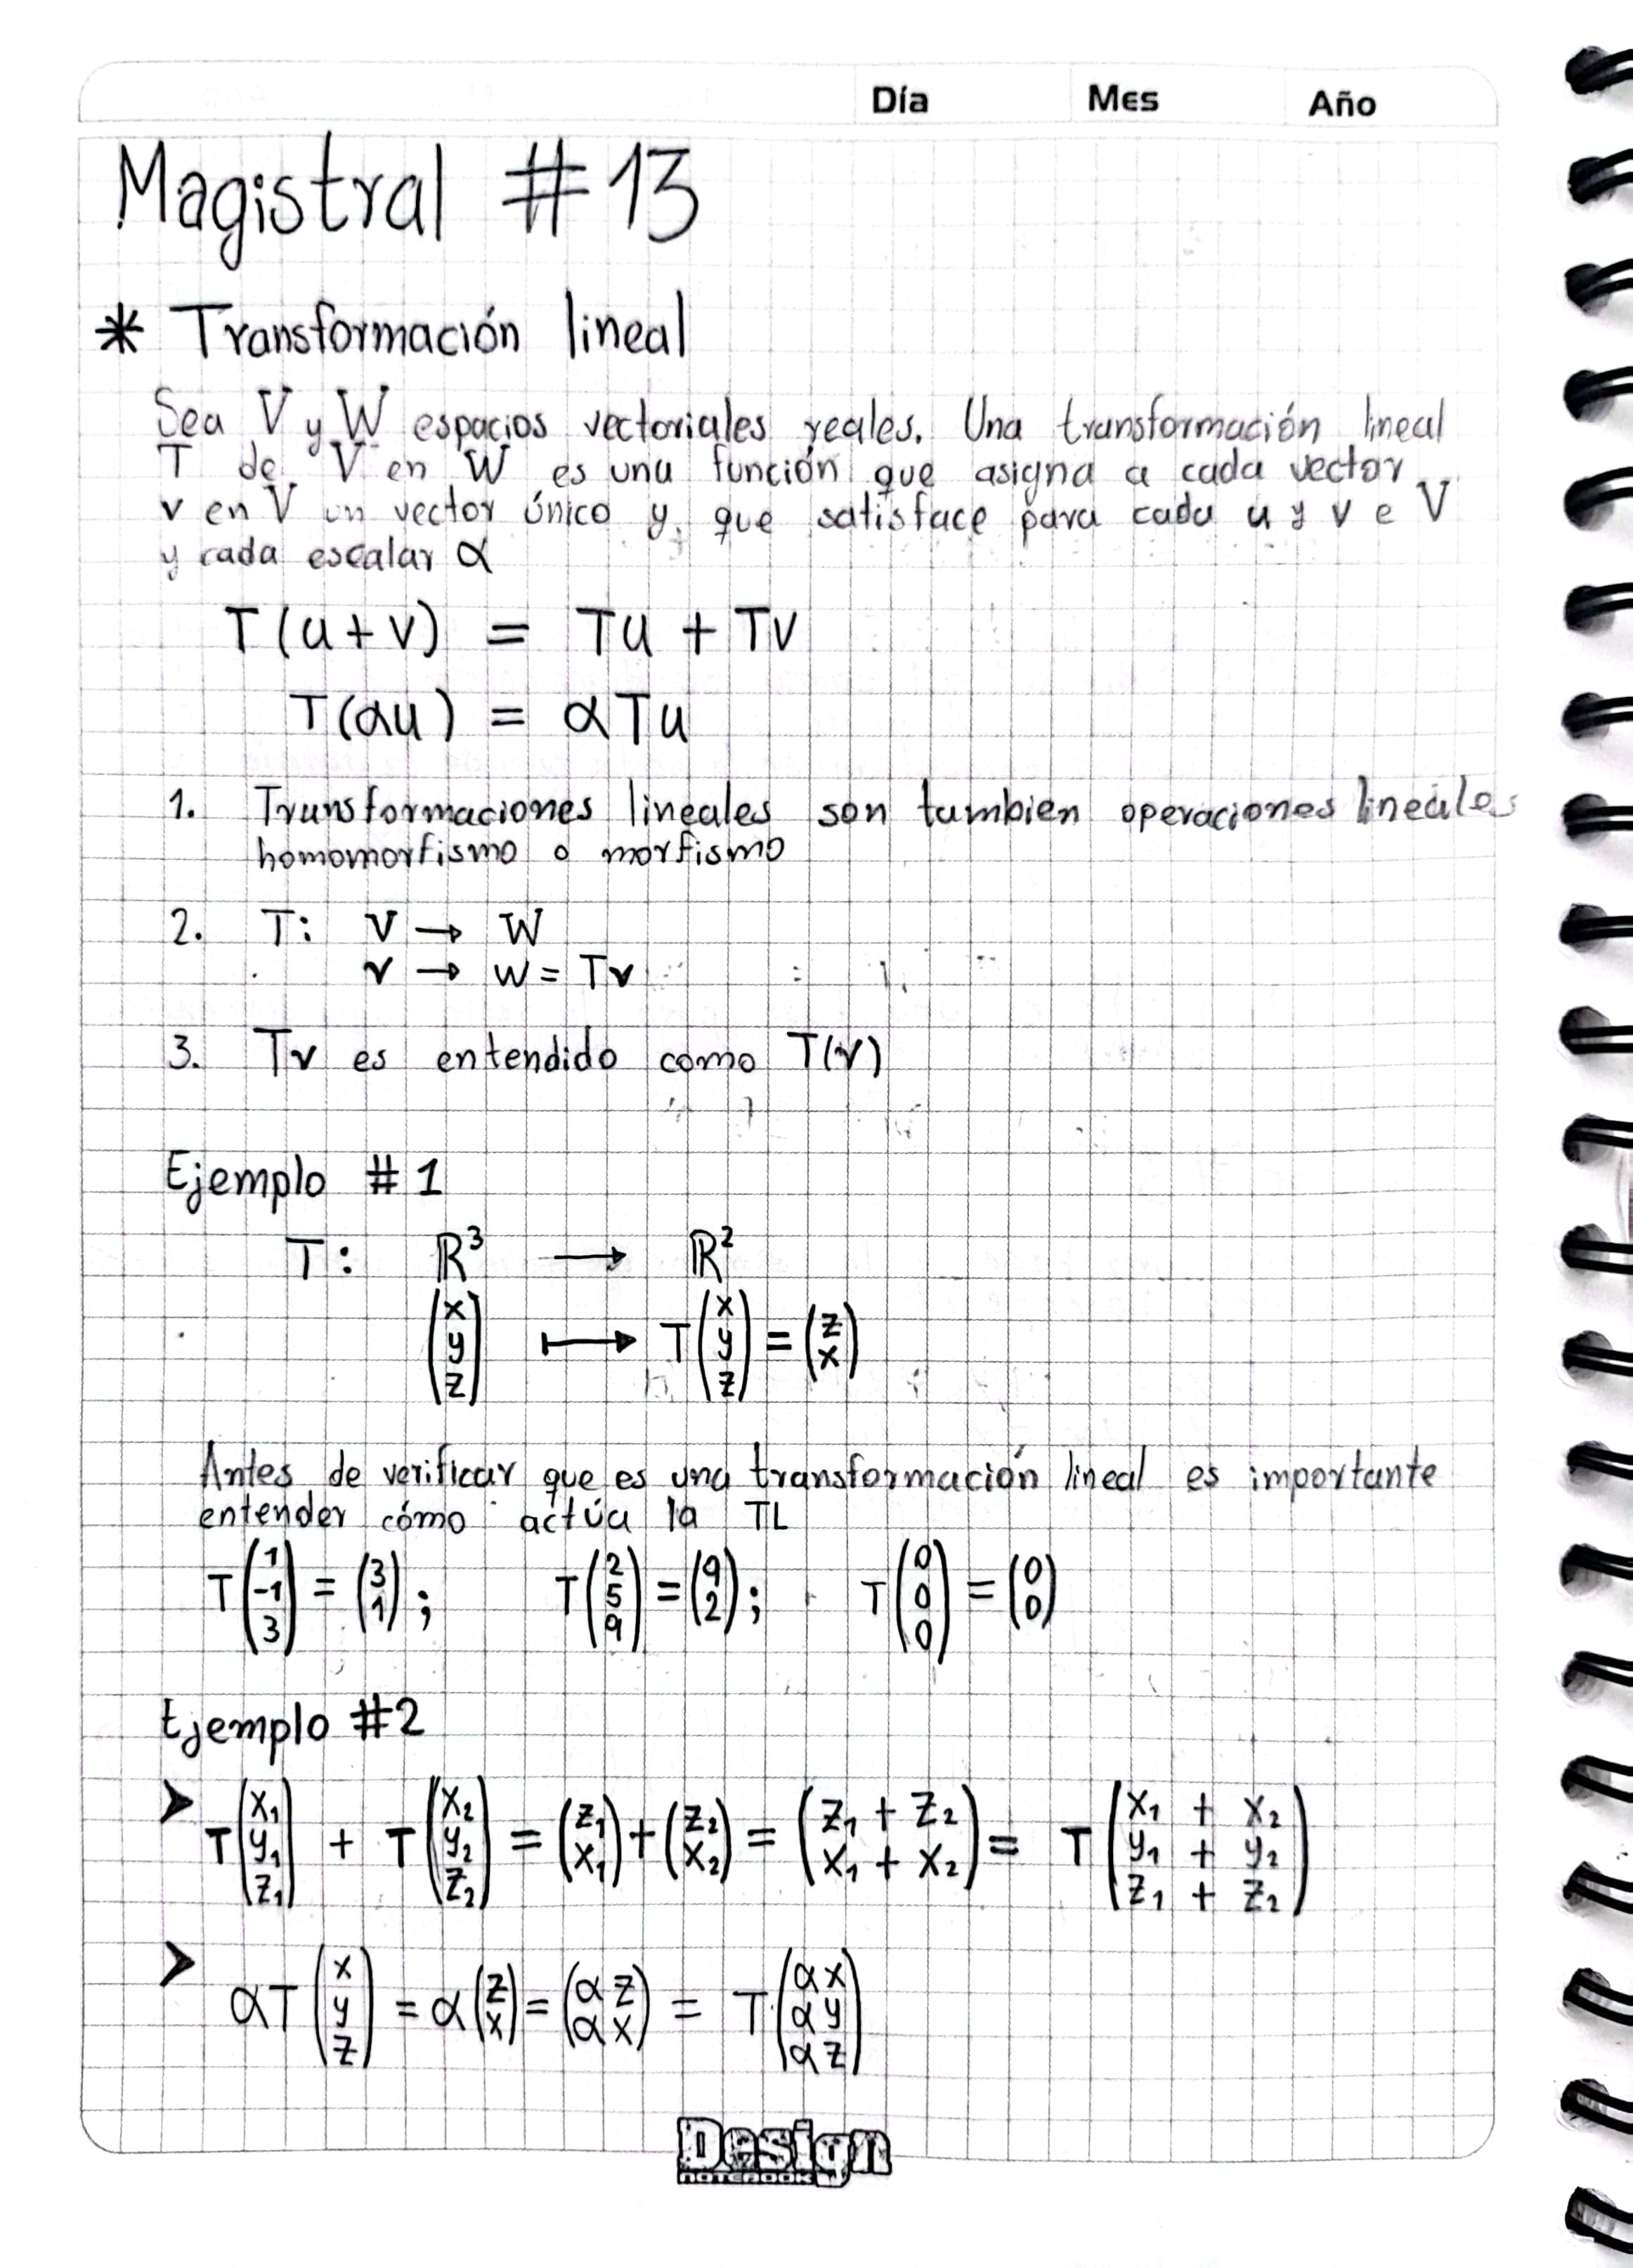 Día Mes Año
Magistral #13
* Transformación lineal
Sea V y W espacios vectoriales reales. Una transformación lineal
T de V en W es una función que asigna a cada vector
v en V un vector único y que satisface para cada u y v e V
y cada escalar α
T(u+v) = Tu + Tv
T(αu) = αTu
1. Transformaciones lineales son tambien operaciones lineales
homomorfismo o morfismo
2. T: V → W
v → w = Tv
3. Tv es entendido como T(v)
Ejemplo #1
T: ℝ³ → ℝ²
(x y z) ↦ T(x y z) = (z x)
Antes de verificar que es una transformación lineal es importante
entender cómo actúa la TL
T(1 -1 3) = (3 1); T(2 5 9) = (9 2); T(0 0 0) = (0 0)
Ejemplo #2
➤ T(x₁ y₁ z₁) + T(x₂ y₂ z₂) = (z₁ x₁) + (z₂ x₂) = (z₁ + z₂ x₁ + x₂) = T(x₁ + x₂ y₁ + y₂ z₁ + z₂)
➤ αT(x y z) = α(z x) = (αz αx) = T(αx αy αz)
Design
NOTEBOOK